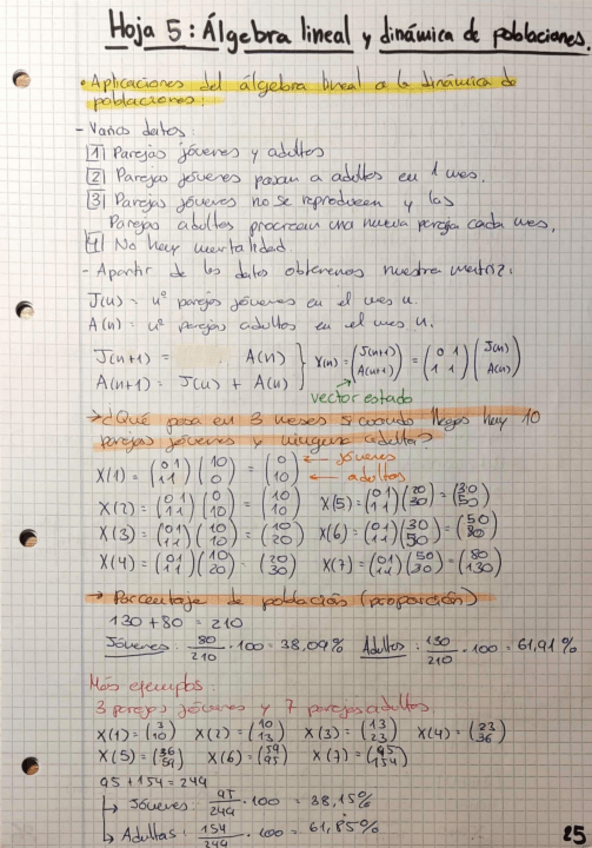 Hoja 5: Álgebra lineal y dinámica de poblaciones.
• Aplicaciones del álgebra lineal a la dinámica de
poblaciones:
- Varios datos:
1 Parejas jóvenes y adultos
2 Parejas jóvenes pasan a adultos en 1 mes.
3 Parejas jóvenes no se reproducen y las
Parejas adultas procrean una nueva pareja cada mes.
4 No hay mortalidad.
- Apartir de los datos obtenemos nuestra matriz:
J(n) = nº parejas jóvenes en el mes n.
A(n) = nº parejas adultos en el mes n.
J(n+1) = A(n)
A(n+1) = J(n) + A(n) } X(n) = (J(n+1) A(n+1)) = (0 1 1 1) (J(n) A(n))
vector estado
→ ¿Qué pasa en 3 meses si cuando llegas hay 10
parejas jóvenes y ninguna adulta?
X(1) = (0 1 1 1) (10 0) = (0 10) ← jóvenes ← adultos
X(2) = (0 1 1 1) (0 10) = (10 10) X(5) = (0 1 1 1) (20 30) = (30 50)
X(3) = (0 1 1 1) (10 10) = (10 20) X(6) = (0 1 1 1) (30 50) = (50 80)
X(4) = (0 1 1 1) (10 20) = (20 30) X(7) = (0 1 1 1) (50 80) = (80 130)
→ Porcentaje de población (proporción)
130 + 80 = 210
Jóvenes: 80/210 · 100 = 38,09% Adultos: 130/210 · 100 = 61,91%
Más ejemplos:
3 parejas jóvenes y 7 parejas adultas
X(1) = (7 10) X(2) = (10 13) X(3) = (13 23) X(4) = (23 36)
X(5) = (36 59) X(6) = (59 95) X(7) = (95 154)
95 + 154 = 249
↳ Jóvenes: 95/249 · 100 = 38,15%
↳ Adultas: 154/249 · 100 = 61,85%
25